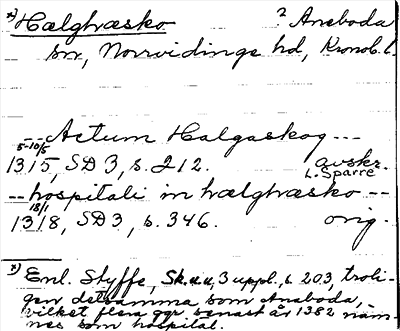 x) Hælghæsko ? Aneboda
sn, Norrvidinge hd, Kronob. l.
-- Actum Halgaskog ---
5-10/5
1315, SD 3, s. 212. avskr. L. Sparre
-- hospitali in hælghæsko --
18/1
1318, SD 3, s. 346. orig.
x) Enl. Styffe, Sk. u. u, 3 uppl., s. 203, troli-
gen detsamma som Aneboda,
vilket flera ggr senast år 1382 näm-
nes som hospital.